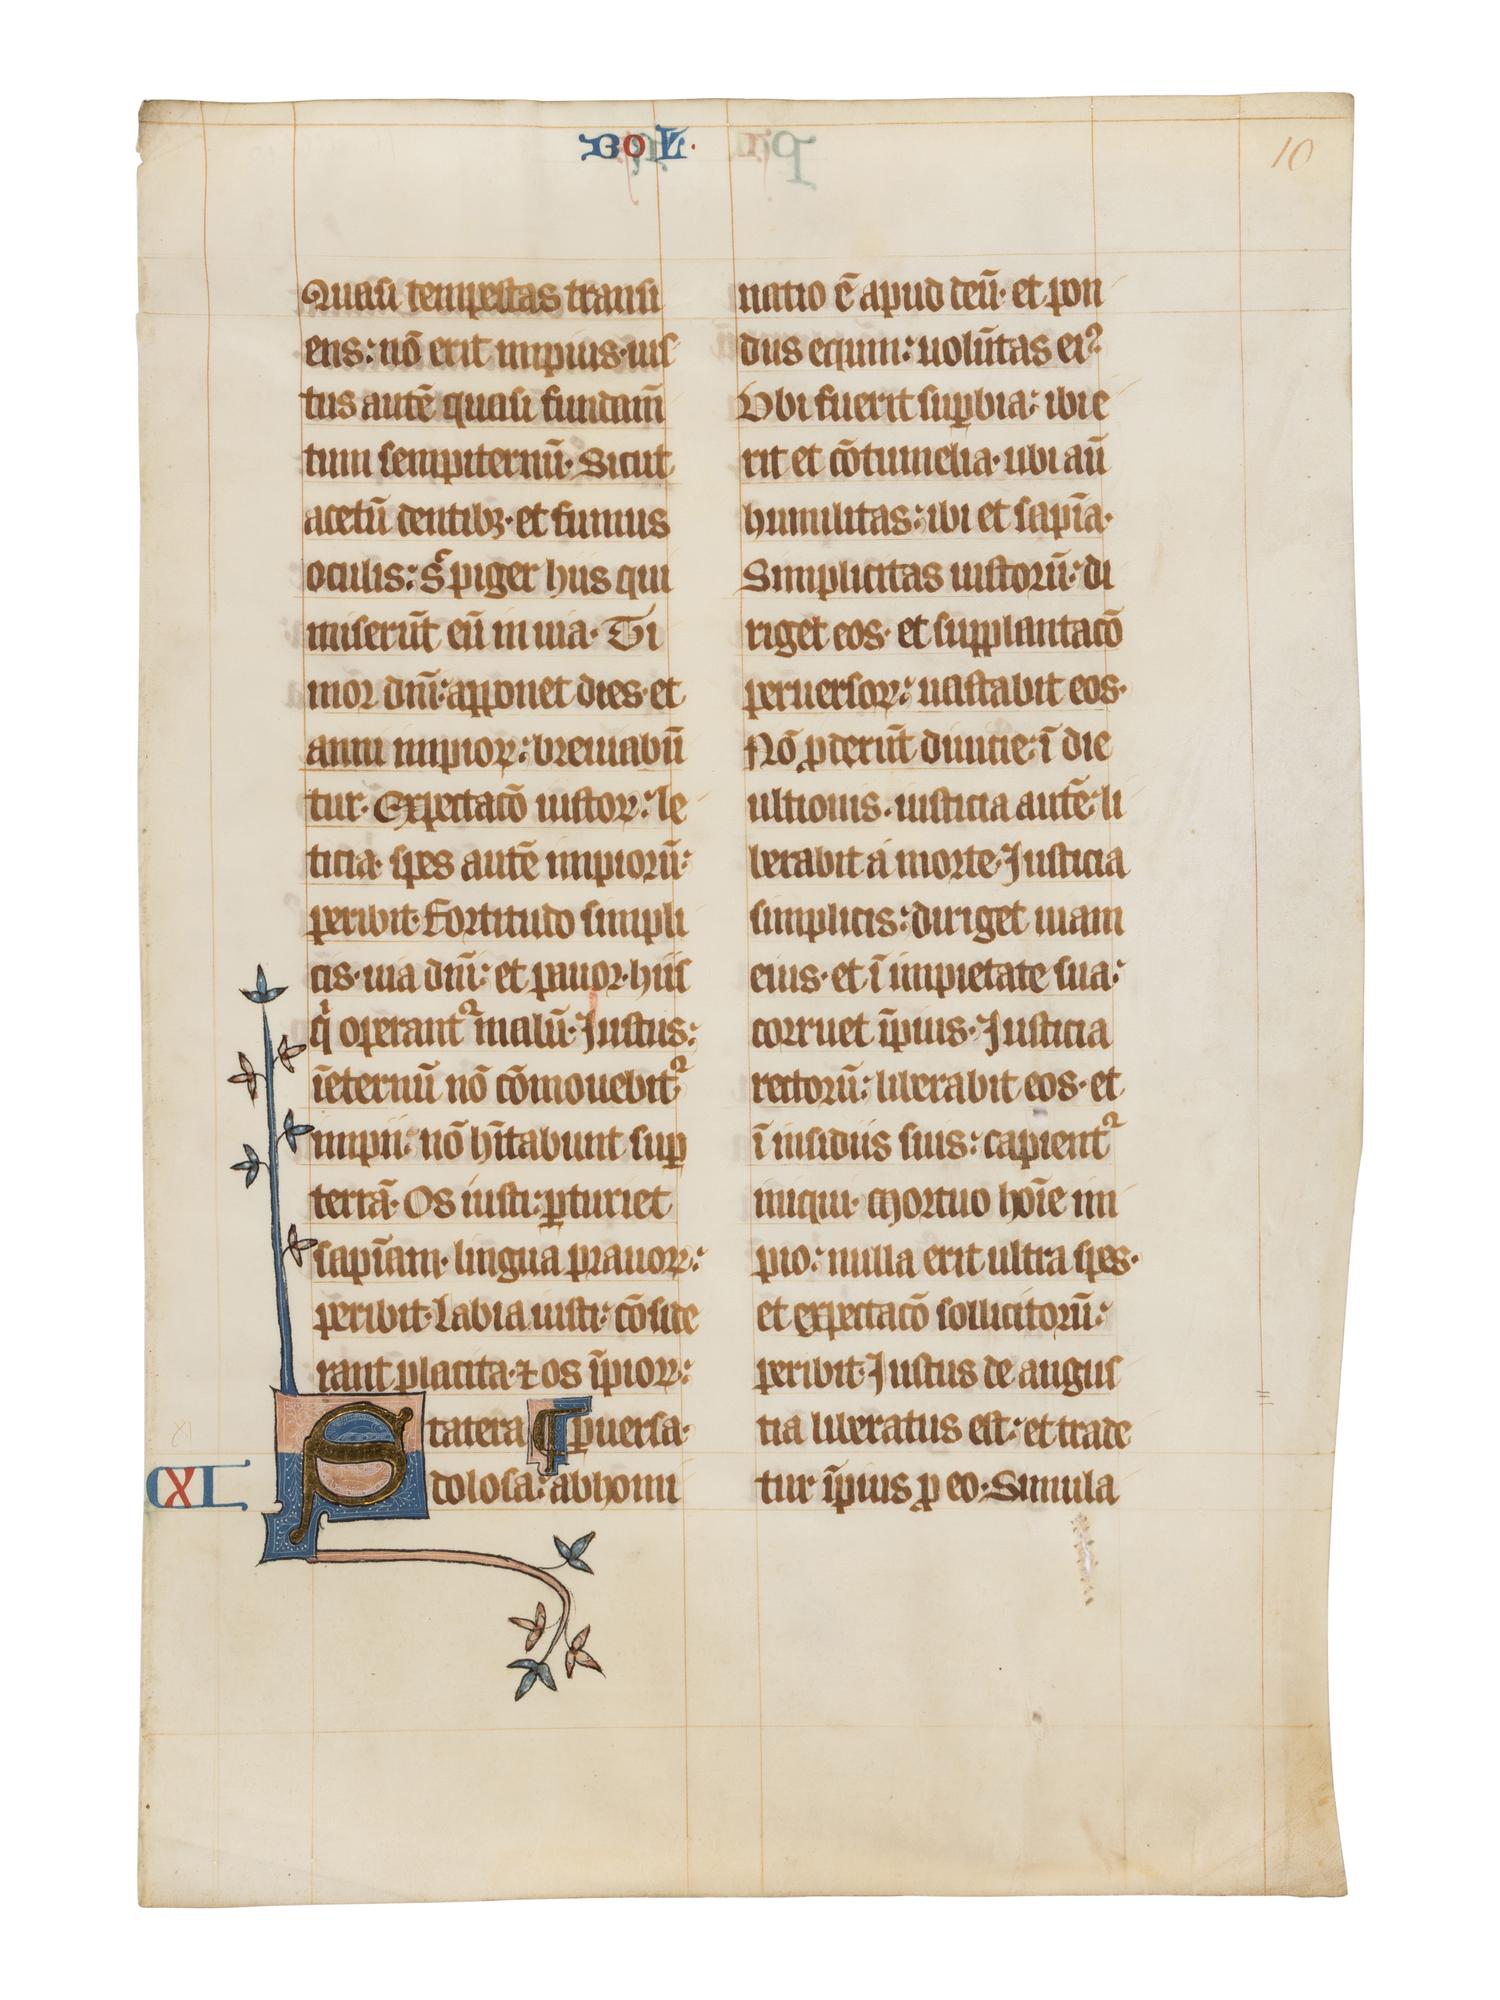 10
Quasi tempestas transi
ens: nō erit impius· ius
tus autē quasi fundam̄
tum sempiternū· Sicut
acetū dentibꝫ· et fumus
oculis: s̄ piger hiis qui
miserūt eū in uia· Ti
mor dn̄i: apponet dies· et
anni impioꝝ: breuiabūn
tur· Expectacō iustoꝝ: le
ticia· spes autē impiorū:
peribit· Fortitudo simpli
cis· uia dn̄i: et pauor· hiis
q̇ operantᷣ malū· Justus:
īeternū nō cōmouebitᷣ
impii: nō hītabunt suꝑ
terrā· Os iusti: ꝑturiet
sapīam· lingua prauoꝝ:
peribit· Labia iusti: cōside
rant placita· ⁊ os īpioꝝ:
ꝑuersa·
XI
Statera
dolosa: abhomi
natio ē apud deū· et pon
dus equm: uolūtas eiꝰ
Vbi fuerit suꝑbia: ibi e
rit et cōtumelia· ubi aū
humilitas: ibi et sapīa·
Simplicitas iustorū: di
riget eos· et supplantacō
peruersoꝝ: uastabit eos·
Nō ꝓderūt diuicie: ī die
ultionis· iusticia autē: li
berabit a morte· Justicia
simplicis: diriget uiam
eius· et ī impietate sua:
corruet īpius· Justicia
rectorū: liberabit eos· et
ī insidiis suis: capientᷣ
iniqui· Mortuo hoīe im
pio: nulla erit ultra spes·
et expectacō sollicitorū:
peribit· Justus de angus
tia liberatus est: et trade
tur īpius ꝓ eo· Simula